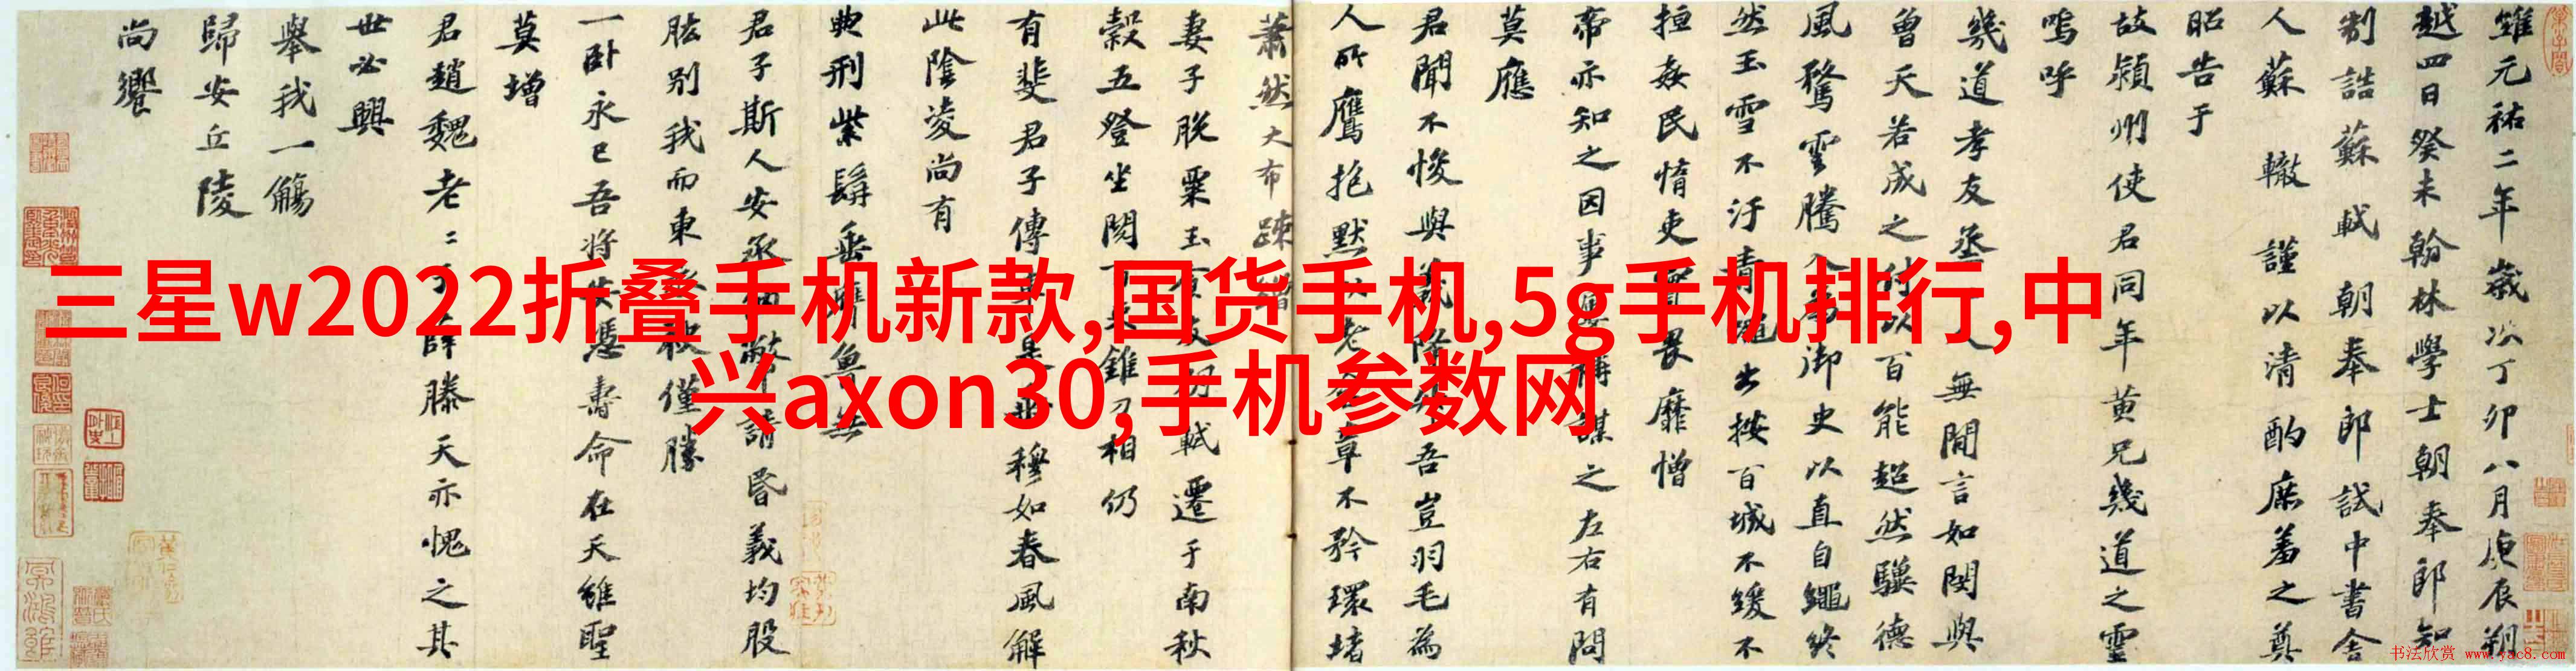 三星w2022折叠手机新款,国货手机,5g手机排行,中
兴axon30,手机参数网
維元祐二年歲次丁卯八月庚辰朔
越四日癸未翰林學士朝奉郎知
制誥蘇軾朝奉郎試中書舍
人蘇轍謹以清酌庶羞之奠
昭告于
故潁州使君同年黄兄幾道之靈
嗚呼
幾道孝友烝烝人無間言如閔與
曾天若成之付以百能超然驥德
風騖雲騰入為御史以直自繩終
然玉雪不汙青蠅出按百城不緩不
擅姦民惰吏實畏靡憎
帝亦知之因事屢稱謀之左右有問
莫應
君聞不悛與義降升吾豈羽毛為
人所鷹抱默以老終章不矜環堵
蕭然大布疎繒
妻子脫粟玉食友朋軾遷于南秋
穀五登坐閱百吏錐刀相仍
有斐君子傳車是乘穆如春風解
此陰凌尚有
典刑紫髯垂膺魯無
君子斯人安承納幣請昏義均股
肱别我而東衣袂僅勝
一卧永已吾將安憑壽命在天雖聖
莫增
君趙魏老老于薛滕天亦愧之其
世必興
舉我一觴
歸安丘陵
尚饗
书法欣赏 www.yac8.com